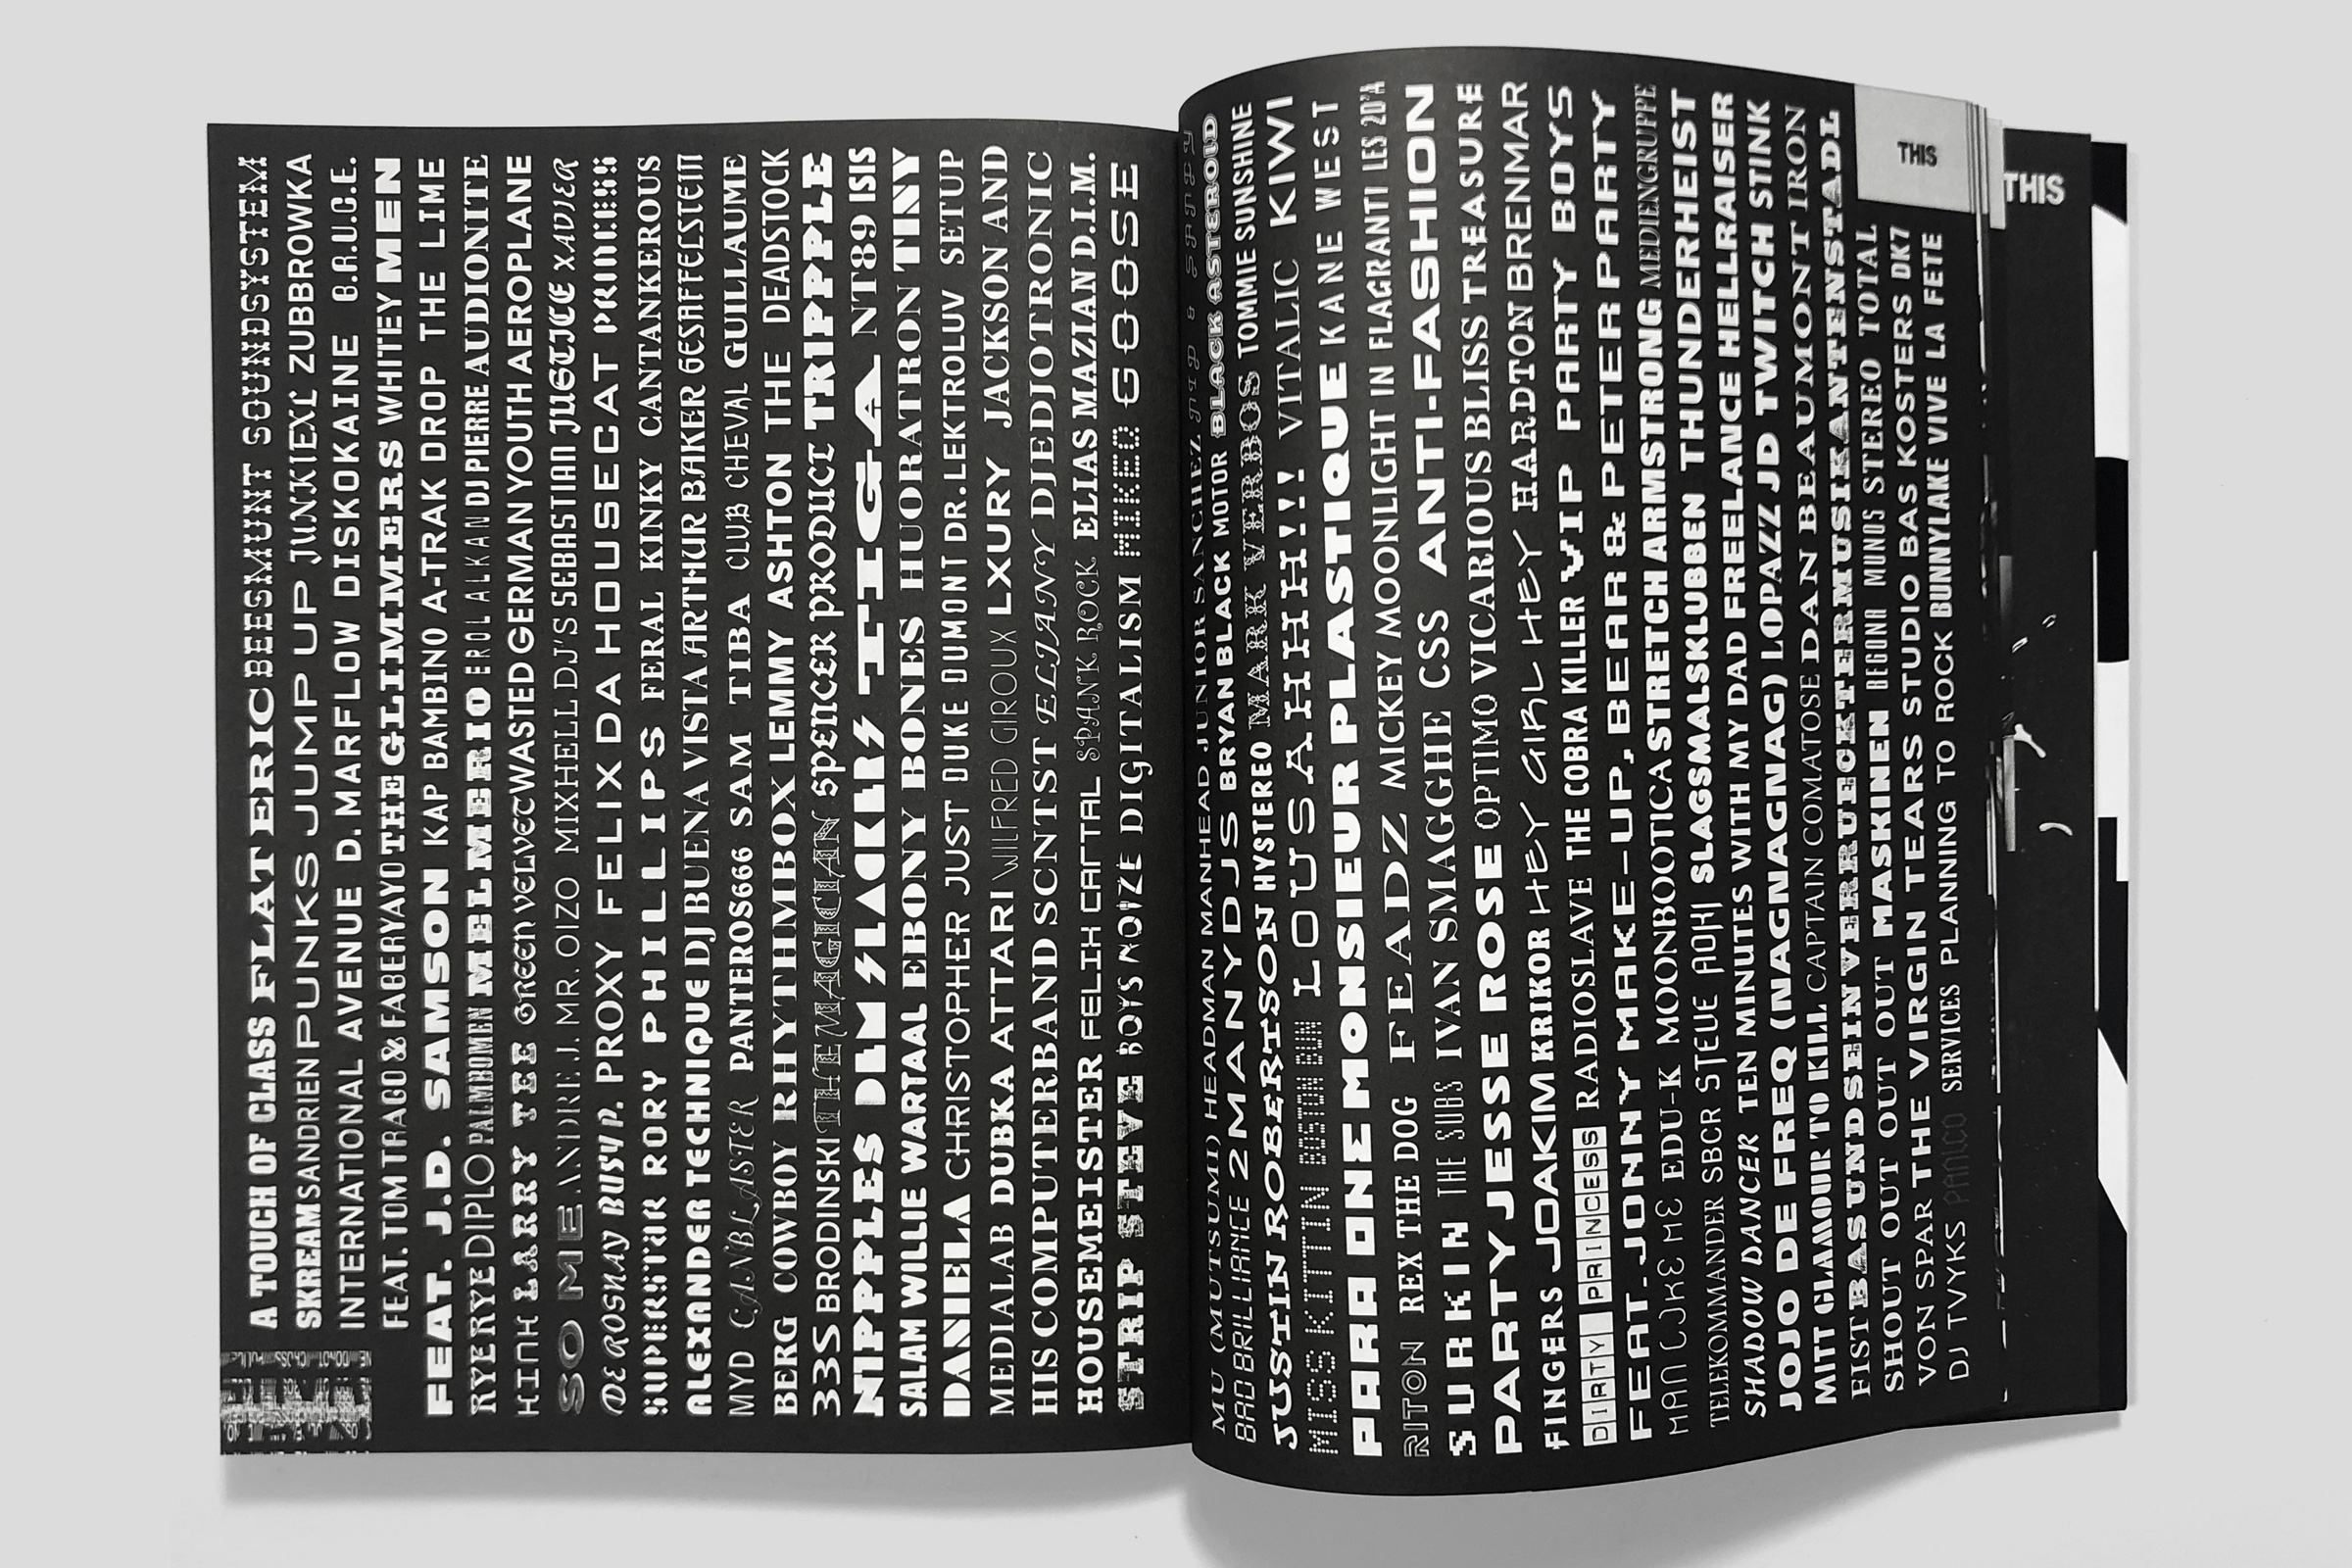 A TOUCH OF CLASS FLAT ERIC BEESMUNT SOUNDSYSTEM
SKREAM SANDRIEN PUNKS JUMP UP JUNKIE XL ZUBBROWKA
INTERNATIONAL AVENUE D. MARFLOW DISKOKAINE B.R.U.C.E.
FEAT. TOM TRAGO & FABERYAYO THE GLIMMERS WHITEY MEN
FEAT. J.D. SAMSON KAP BAMBINO A-TRAK DROP THE LIME
RYE RYE DIPLO PALMBOMEN MELMBERIO EROL ALKAN DJ PIERRE AUDIONITE
HINK LARRY TEE GREEN VELVET WASTED GERMAN YOUTH AEROPLANE
SO ME ANDRE J. MR. OIZO MIXHELL DJ'S SEBASTIAN JUSTICE XAVIER
DE ROSNAY BUSY P. PROXY FELIX DA HOUSECAT PRINCESS
SUPERSTAR RORY PHILLIPS FERAL KINKY CANTANKEROUS
ALEXANDER TECHNIQUE DJ BUENA VISTA ARTHUR BAKER GESAFFELSTEIN
MYD CANBLASTER PANTEROS666 SAM TIBA CLUB CHEVAL GUILLAUME
BERG COWBOY RHYTHMBOX LEMMY ASHTON THE DEADSTOCK
33S BRODINSKI THE MAGICIAN SPENCER PRODUCT TRIPPPLE
NIPPPLES DLM SLACKERS TIGA NT89 ISIS
SALAM WILLIE WARTAAL EBONY BONES HUORATRON TINY
DANIELA CHRISTOPHER JUST DUKE DUMONT DR. LEKTROLUV SETUP
MEDIALAB DUBKA ATTARI WILFRED GIROUX LXURY JACKSON AND
HIS COMPUTERBAND SCNTST ELIANY DJEDJOTRONIC
HOUSEMEISTER FELIX CARTAL SPANK ROCK ELIAS MAZIAN D.I.M.
STRIP STEVE BOYS NOIZE DIGITALISM MEKEO GOOSE
MU (MUTSUMI) HEADMAN MANHEAD JUNIOR SANCHEZ
BAD BRILLIANCE 2MANYDJS BRYAN BLACK MOTOR BLACK ASTEROID
JUSTIN ROBERTSON HYSTEREO MARK VERBOS TOMMIE SUNSHINE
MISS KITTIN BOSTON BUN LOUSAHHH!!! VITALIC KIWI
PARA ONE MONSIEUR PLASTIQUE KANE WEST
RITON REX THE DOG FEADZ MICKEY MOONLIGHT IN FLAGRANTI LES 2D'A
SURKIN THE SUBS IVAN SMAGGHE CSS ANTI-FASHION
PARTY JESSE ROSE OPTIMO VICARIOUS BLISS TREASURE
FINGERS JOAKIM KRIKOR HEY GIRL HEY HARDTON BRENMAR
DIRTY PRINCESS RADIOSLAVE THE COBRA KILLER VIP PARTY BOYS
FEAT. JONNY MAKE-UP, BEAR & PETER PARTY
MAN LIKE ME EDU-K MOONBOOTICA STRETCH ARMSTRONG MEDIENGRUPPE
TELEKOMMANDER SBCR STEVE AOKI SLAGSMALSKLUBBEN THUNDERHEIST
SHADOW DANCER TEN MINUTES WITH MY DAD FREELANCE HELLRAISER
JOJO DE FREQ (NAGNAGNAG) LOPAZZ JD TWITCH STINK
MITT GLAMOUR TO KILL CAPTAIN COMATOSE DAN BEAUMONT IRON
FIST BAS UND SEIN VERRUECKTER MUSIKANTENSTADL
SHOUT OUT OUT OUT OUT MASKINEN BEGONA MUNOS STEREO TOTAL
VON SPAR THE VIRGIN TEARS STUDIO BAS KOSTERS DK7
DJ TVYKS SERVICES PLANNING TO ROCK BUNNYLAKE VIVE LA FETE
THIS
THIS